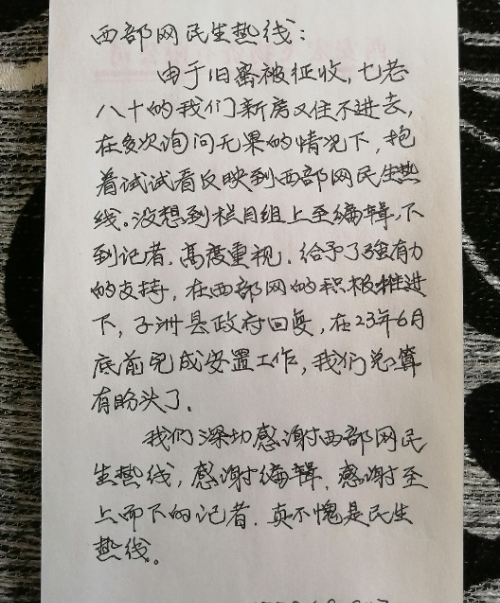 西部网民生热线：
由于旧窑被征收，七老
八十的我们新房又住不进去，
在多次询问无果的情况下，抱
着试试看反映到西部网民生热
线。没想到栏目组上至编辑，下
到记者，高度重视，给予了强有力
的支持，在西部网的积极推进
下，子洲县政府回复，在23年6月
底前完成安置工作，我们总算
有盼头了。
我们深切感谢西部网民
生热线，感谢编辑，感谢至
上而下的记者，真不愧是民生
热线。